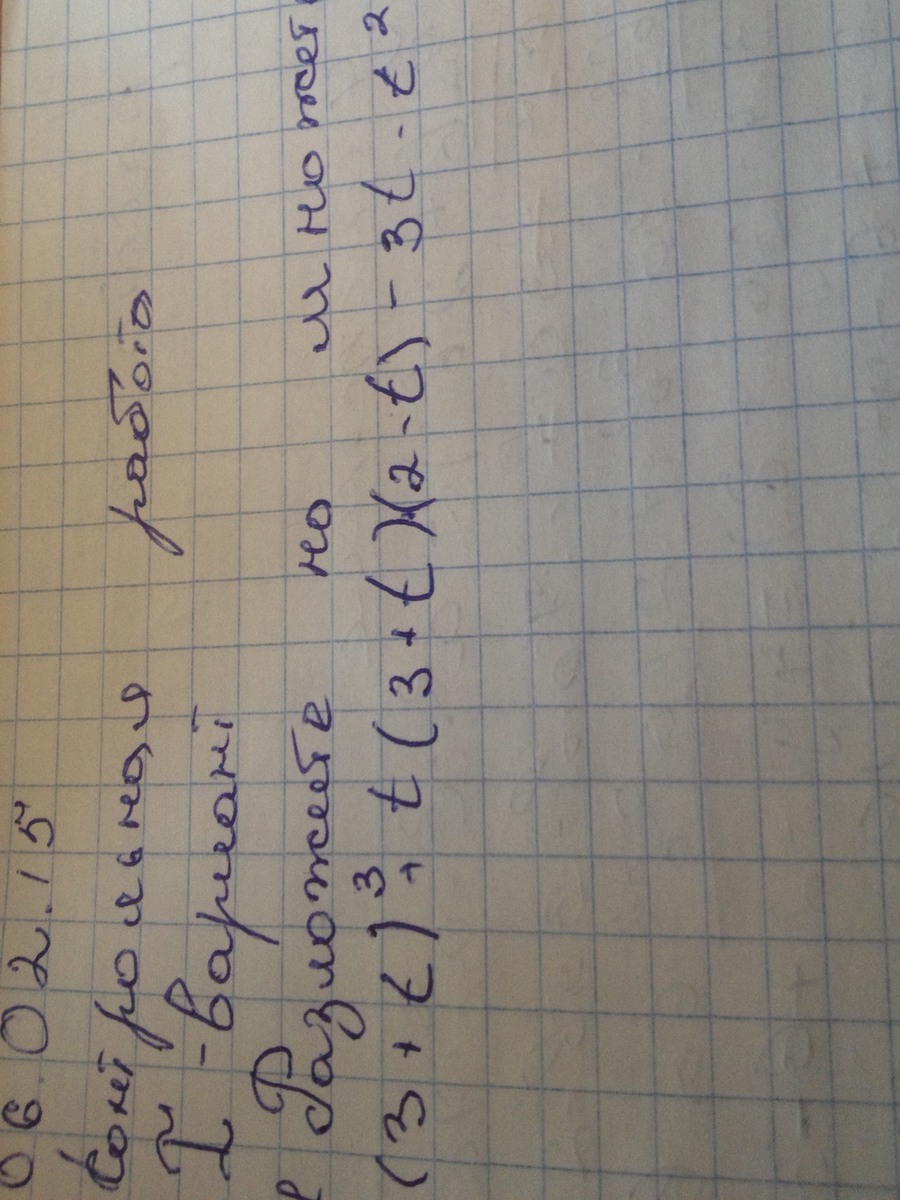 06.02.15
Контрольная работа
I - вариант
Разложете на множет
(3+t)³ + t(3+t)(2-t) - 3t - t²